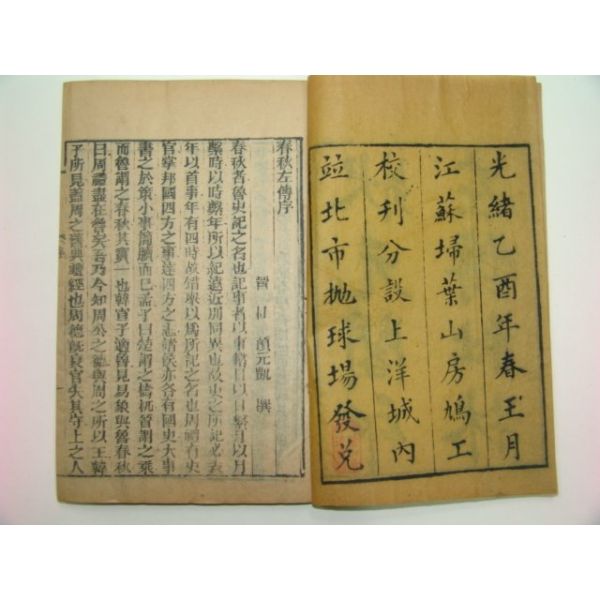 光緒乙酉年春王月
江蘇埽葉山房鳩工
校刊分設上洋城內
竝北市拋球場發兌
春秋左傳序
晉 杜 預元凱 撰
春秋者魯史記之名也記事者以事繫日以日繫月以月
繫時以時繫年所以紀遠近別同異也故史之所記必表
年以首事年有四時故錯舉以爲所記之名也周禮有史
官掌邦國四方之事達四方之志諸侯亦各有國史大事
書之於策小事簡牘而已孟子曰楚謂之檮杌晉謂之乘
而魯謂之春秋其實一也韓宣子適魯見易象與魯春秋
曰周禮盡在魯矣吾乃今知周公之德與周之所以王韓
子所見蓋周之舊典禮經也周德旣衰官失其守上之人